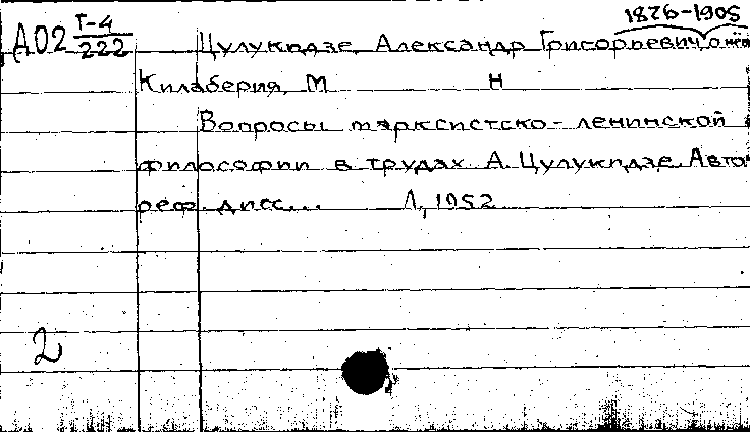 1876-1905
А02 Т-4/222 Цулукидзе, Александр Григорьевич, о нём
Килаберия, М Н
Вопросы марксистско-ленинской
философии в трудах А. Цулукидзе. Авто
реф. дисс... Л, 1952
2